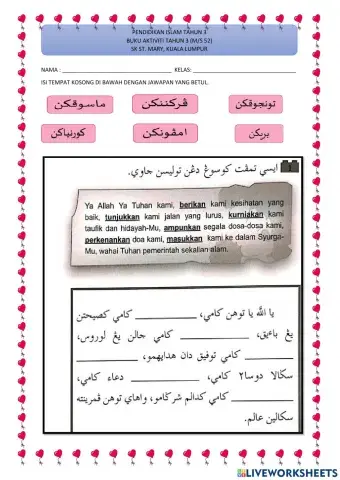 PENDIDIKAN ISLAM TAHUN 3
BUKU AKTIVITI TAHUN 3 (M/S 52)
SK ST. MARY, KUALA LUMPUR
NAMA : ____________ KELAS: ____________
ISI TEMPAT KOSONG DI BAWAH DENGAN JAWAPAN YANG BETUL.
ماسوقکن ڤرکننکن تونجوقکن
کورنياکن امڤونکن بريکن
1 ايسي تمڤت کوسوڠ دڠن توليسن جاوي.
Ya Allah Ya Tuhan kami, berikan kami kesihatan yang
baik, tunjukkan kami jalan yang lurus, kurniakan kami
taufik dan hidayah-Mu, ampunkan segala dosa-dosa kami,
perkenankan doa kami, masukkan kami ke dalam Syurga-
Mu, wahai Tuhan pemerintah sekalian alam.
يا الله يا توهن کامي، ____________ کامي کصيحتن
يڠ باءيق، ____________ کامي جالن يڠ لوروس،
____________ کامي توفيق دان هدايهمو، ____________
سݢالا دوسا٢ کامي، ____________ دعاء کامي،
____________ کامي کدالم شرݢامو، واهاي توهن ڤمرينته
سکالين عالم.
LIVEWORKSHEETS